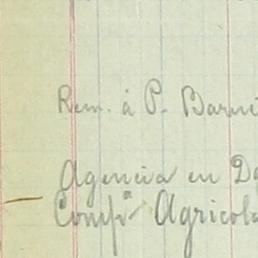 Rem. à P. Barni
Agencia en Da
Compª Agricola